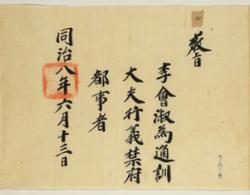 教旨
李會淑為通訓
大夫行義禁府
都事者
同治八年六月十三日